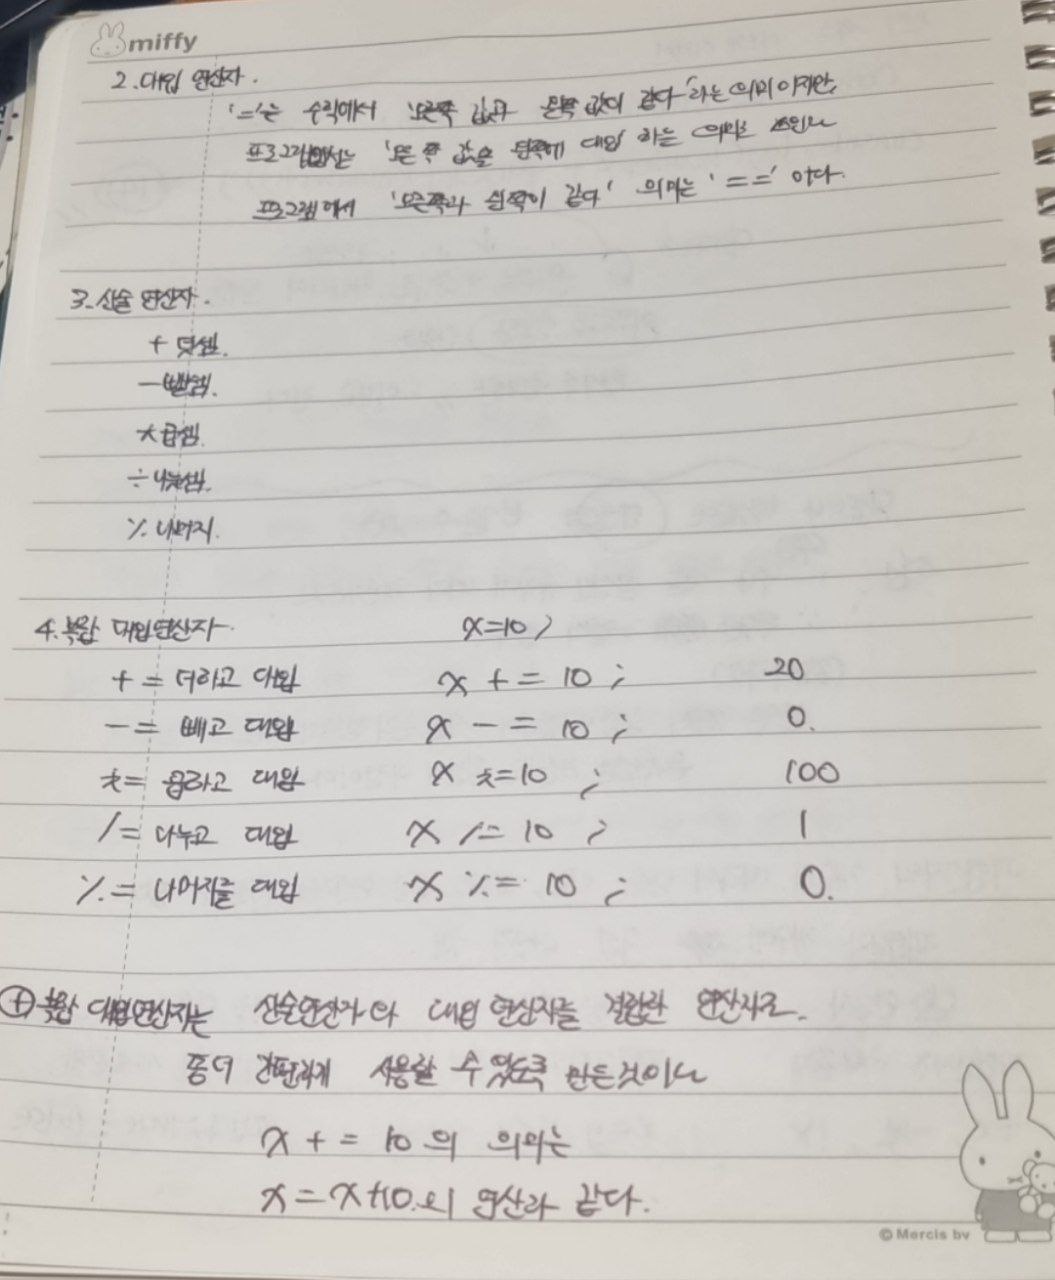 miffy
2. 대입 연산자.
'='는 수학에서 '오른쪽 값과 왼쪽 값이 같다'라는 의미이지만,
프로그램에서는 '오른쪽 값을 왼쪽에 대입 하는 의미로 쓰인다
프로그램에서 '오른쪽과 왼쪽이 같다' 의미는 '==' 이다.
3. 산술 연산자.
+ 덧셈.
- 뺄셈.
* 곱셈.
÷ 나눗셈.
% 나머지.
4. 복합 대입연산자. x=10;
+= 더하고 대입 x += 10; 20
-= 빼고 대입 x -= 10; 0.
*= 곱하고 대입 x *= 10; 100
/= 나누고 대입 x /= 10; 1
%= 나머지를 대입 x %= 10; 0.
⊕ 복합 대입연산자는 산술연산자와 대입 연산자를 결합한 연산자로.
좀더 간편하게 사용할 수 있도록 만든것이다
x += 10 의 의미는
x = x+10.의 연산과 같다.
© Mercis bv